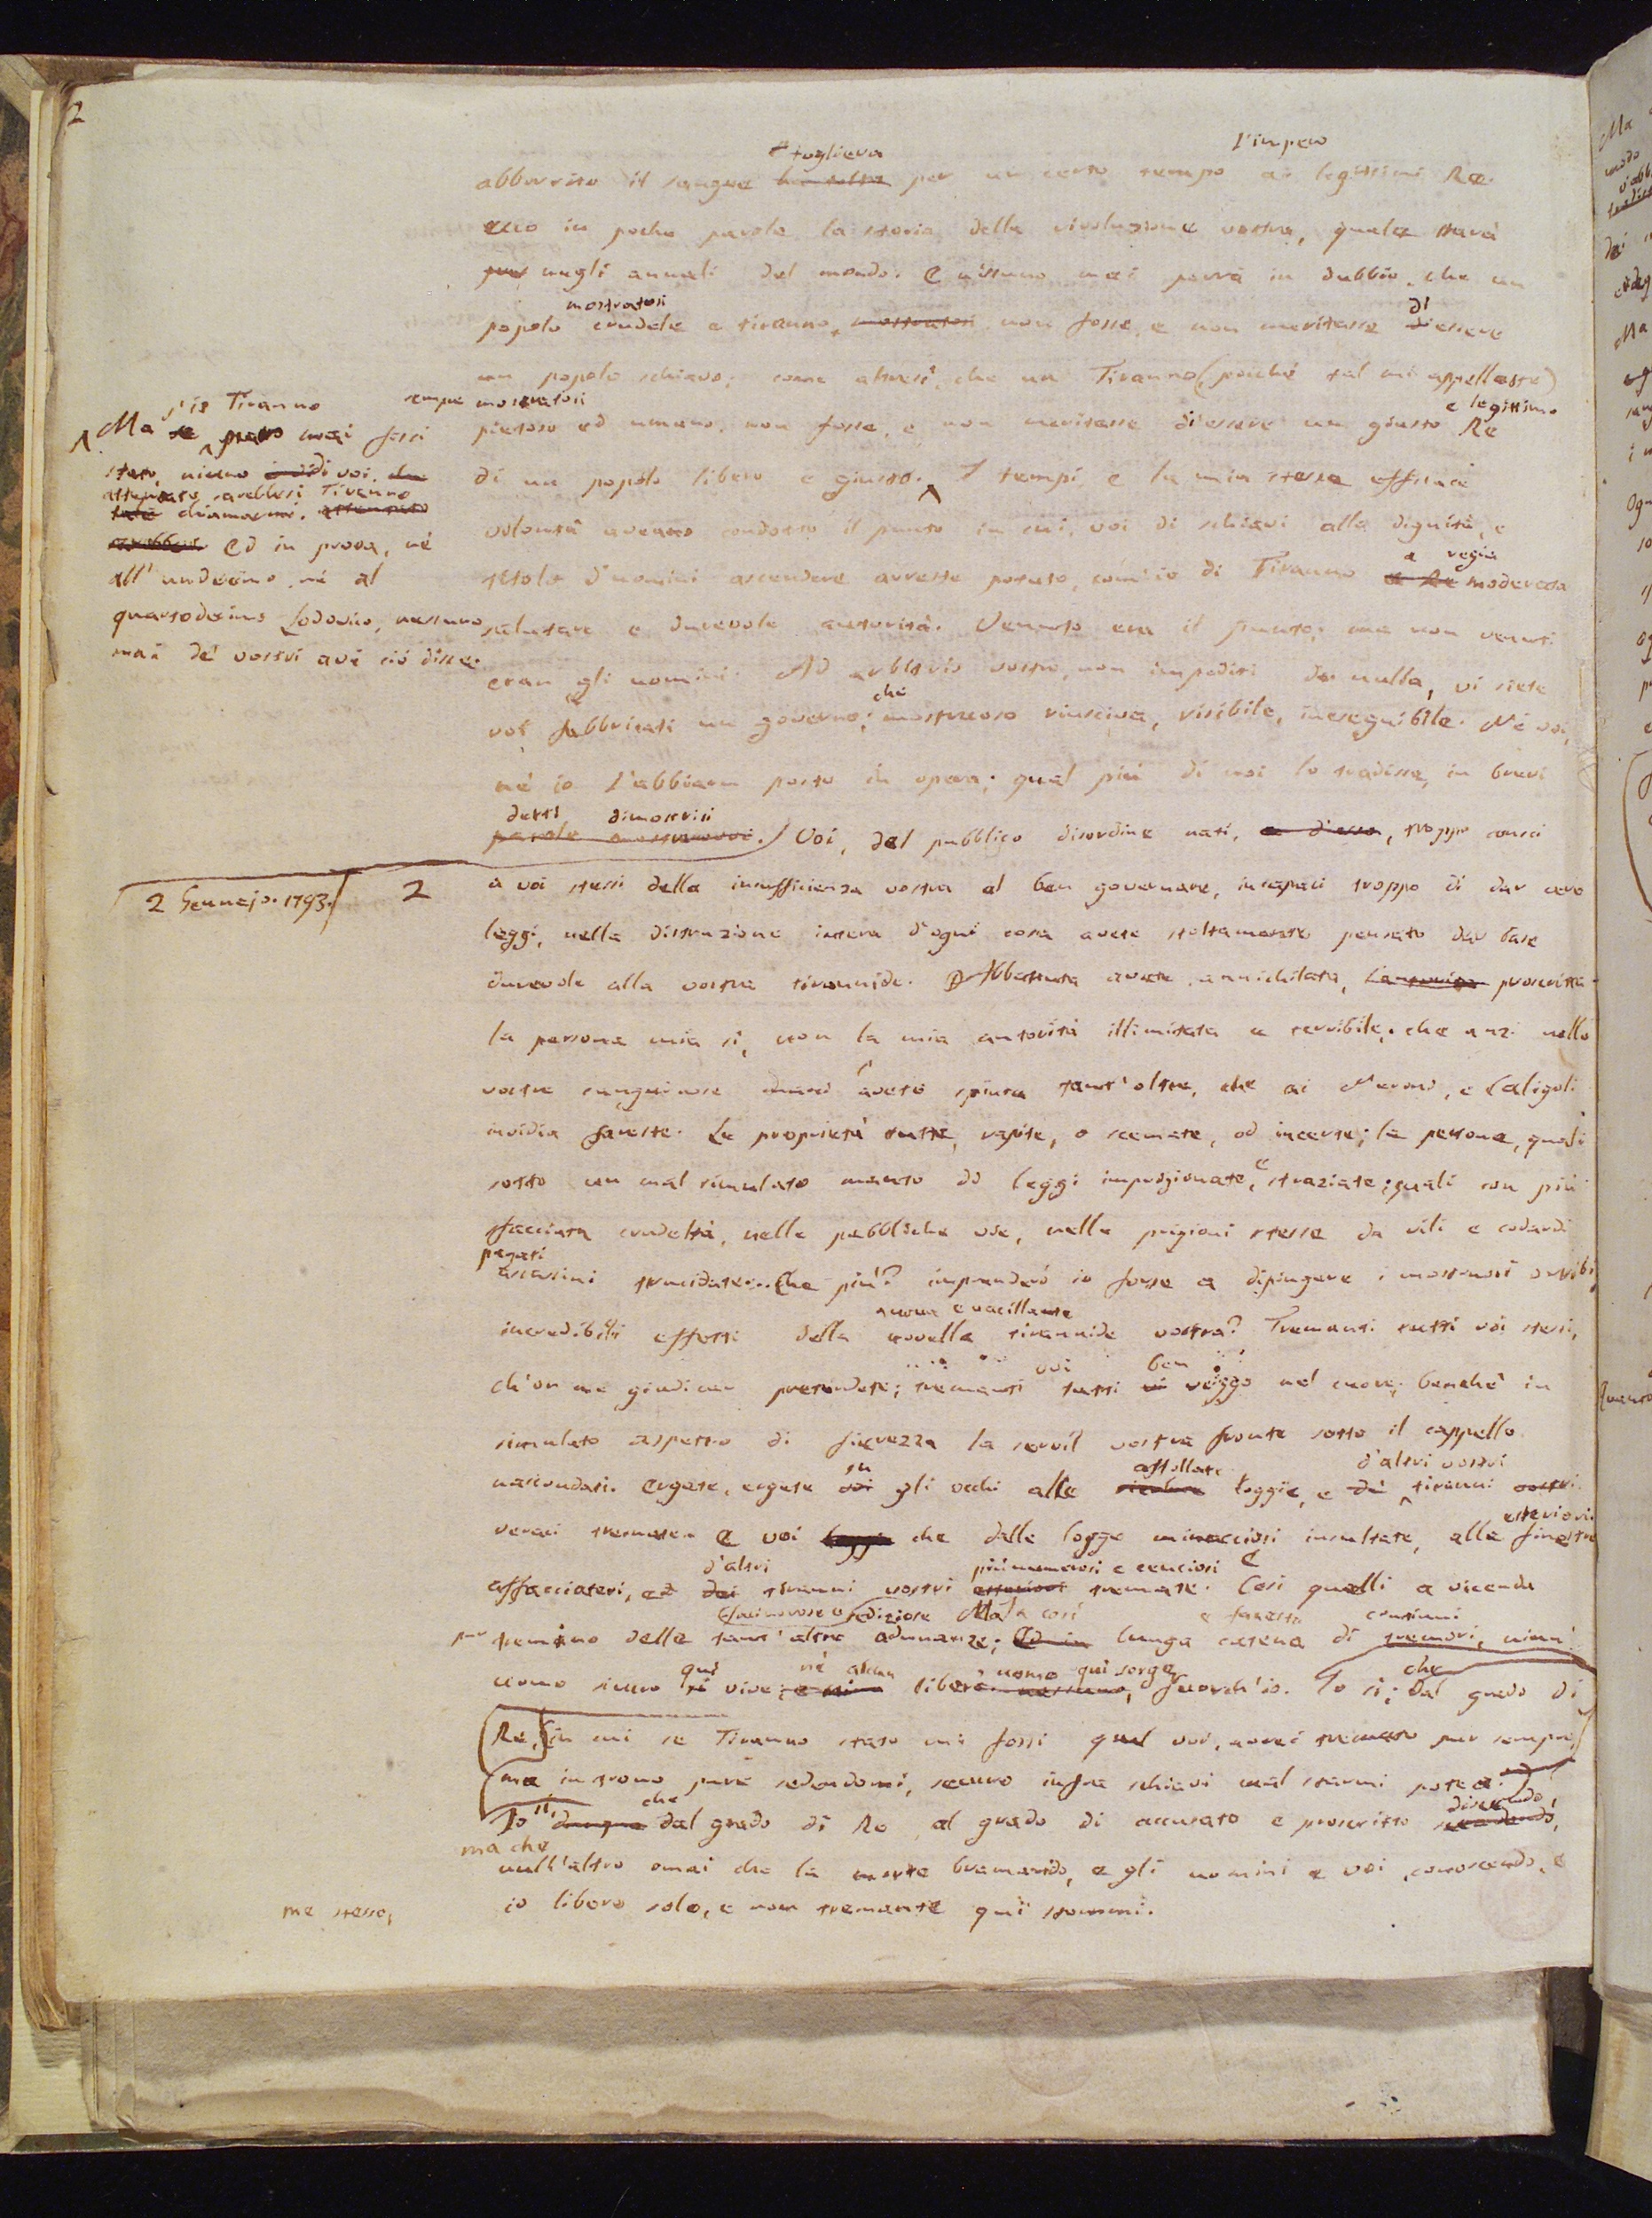 2
toglieva l'impero
abborrito il sangue ha tolto per un certo tempo ai legittimi Re.
ecco in poche parole la storia della rivoluzione vostra, quale starà
pur negli annali del mondo. E nissuno mai porrà in dubbio, che un
mostratosi di
popolo crudele e tiranno, mostratosi non fosse, e non meritasse d'essere
un popolo schiavo; come altresì, che un Tiranno (poiché tal mi appellaste)
sempre mostratosi e legittimo
pietoso ed umano, non fosse, e non meritasse di essere un giusto Re
di un popolo libero e giusto. I tempi, e la mia stessa efficace
volontà aveano condotto il punto in cui, voi di schiavi alla dignità, e
a regia
titolo d'uomini ascendere avreste potuto, com'io di Tiranno a Re moderata
salutare e durevole autorità. Venuto era il punto; ma non venuti
eran gli uomini. Ad arbitrio vostro, non impediti da nulla, vi siete
che
voi fabbricati un governo; mostruoso riusciva, risibile, ineseguibile. Né voi,
né io l'abbiam posto in opera; qual più di noi lo tradisse, in brevi
detti dimostrisi
parole mostrerovvi. Voi, dal pubblico disordine nati, e d'esso, troppo consci
s'io Tiranno
Ma se mai fossi
stato, niuno di voi
attentato sarebbesi Tiranno
tale chiamarmi. attentato
sarebbesi Ed in prova, né
all'undecimo, né al
quartodecimo Lodovico, nessuno
mai de' vostri avi ciò disse.
2 Gennajo. 1793. 2
a voi stessi della insufficienza vostra al ben governare, incapaci troppo di dar vere
leggi, nella distruzione intera d'ogni cosa avete stoltamente pensato dar base
durevole alla vostra tirannide. Abbattuta avete, annichilata, proscritta
la persona mia sì, non la mia autorità illimitata e terribile; che anzi nelle
vostre sanguinose mani l'avete spinta tant'oltre, che ai Neroni, e Caligoli
invidia fareste. Le proprietà tutte, rapite, o scemate, od incerte; le persone, quali
sotto un mal simulato manto di leggi imprigionate, e straziate; quali con più
sfacciata crudeltà, nelle pubbliche vie, nelle prigioni stesse da vili e codardi
pagati
assassini trucidate. Che più? imprenderò io forse a dipingere i mostruosi orribili
nuova e vacillante
incredibili effetti della novella tirannide vostra? Tremanti tutti voi stessi,
voi ben
ch'or me giudicar pretendete; tremanti tutti vi veggo nel cuore; benché in
simulato aspetto di fierezza la servil vostra fronte sotto il cappello
su affollate d'altri vostri
nascondasi. Ergete, ergete voi gli occhi alle loggie, e de' tiranni vostri
esteriori
veraci tremate. E voi loggi che dalle logge minacciosi insultate, alle finestre
d'altri più numerosi e cenciosi
affacciatevi, ed dei tiranni vostri esteriori tremate. E Così quelli a vicenda
facinorose sediziose Ma la così e funesta continui
pur tremino delle tant'altre adunanze; Ed in lunga catena di tremori, niun'
qui né alcun uomo qui sorge che
uomo sicuro vi vive; libero nessuno, fuorch'io. Io sì; Dal grado di
Re, in cui se Tiranno stato mi fossi qual voi, avrei tremato pur sempre,
ma in trono pure sedendomi, securo infra schiavi mal starmi potea.
che discendendo,
Io sì, dunque dal grado di Re, al grado di accusato e proscritto
ma che
null'altro omai che la morte bramando, e gli uomini e voi, conoscendo, e
me stesso,
io libero solo, e non tremante qui stommi.